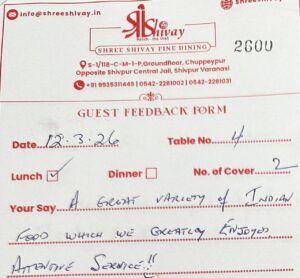 info@shreeshivay.in
www.shreeshivay.
Shivay
SHREE SHIVAY FINE DINING
2600
S-1/118-C-M-1-P,Groundfloor, Chuppeypur
Opposite Shivpur Central Jail, Shivpur Varanasi
+91 9935311449 | 0542-2281002 | 0542-2281031
GUEST FEEDBACK FORM
Date 12.3.26 Table No. 4
Lunch ✓ Dinner No. of Cover 2
Your Say A GREAT VARIETY of INDIAN
FOOD WHICH WE GREATLY ENJOYED
ATTENTIVE SERVICE!!